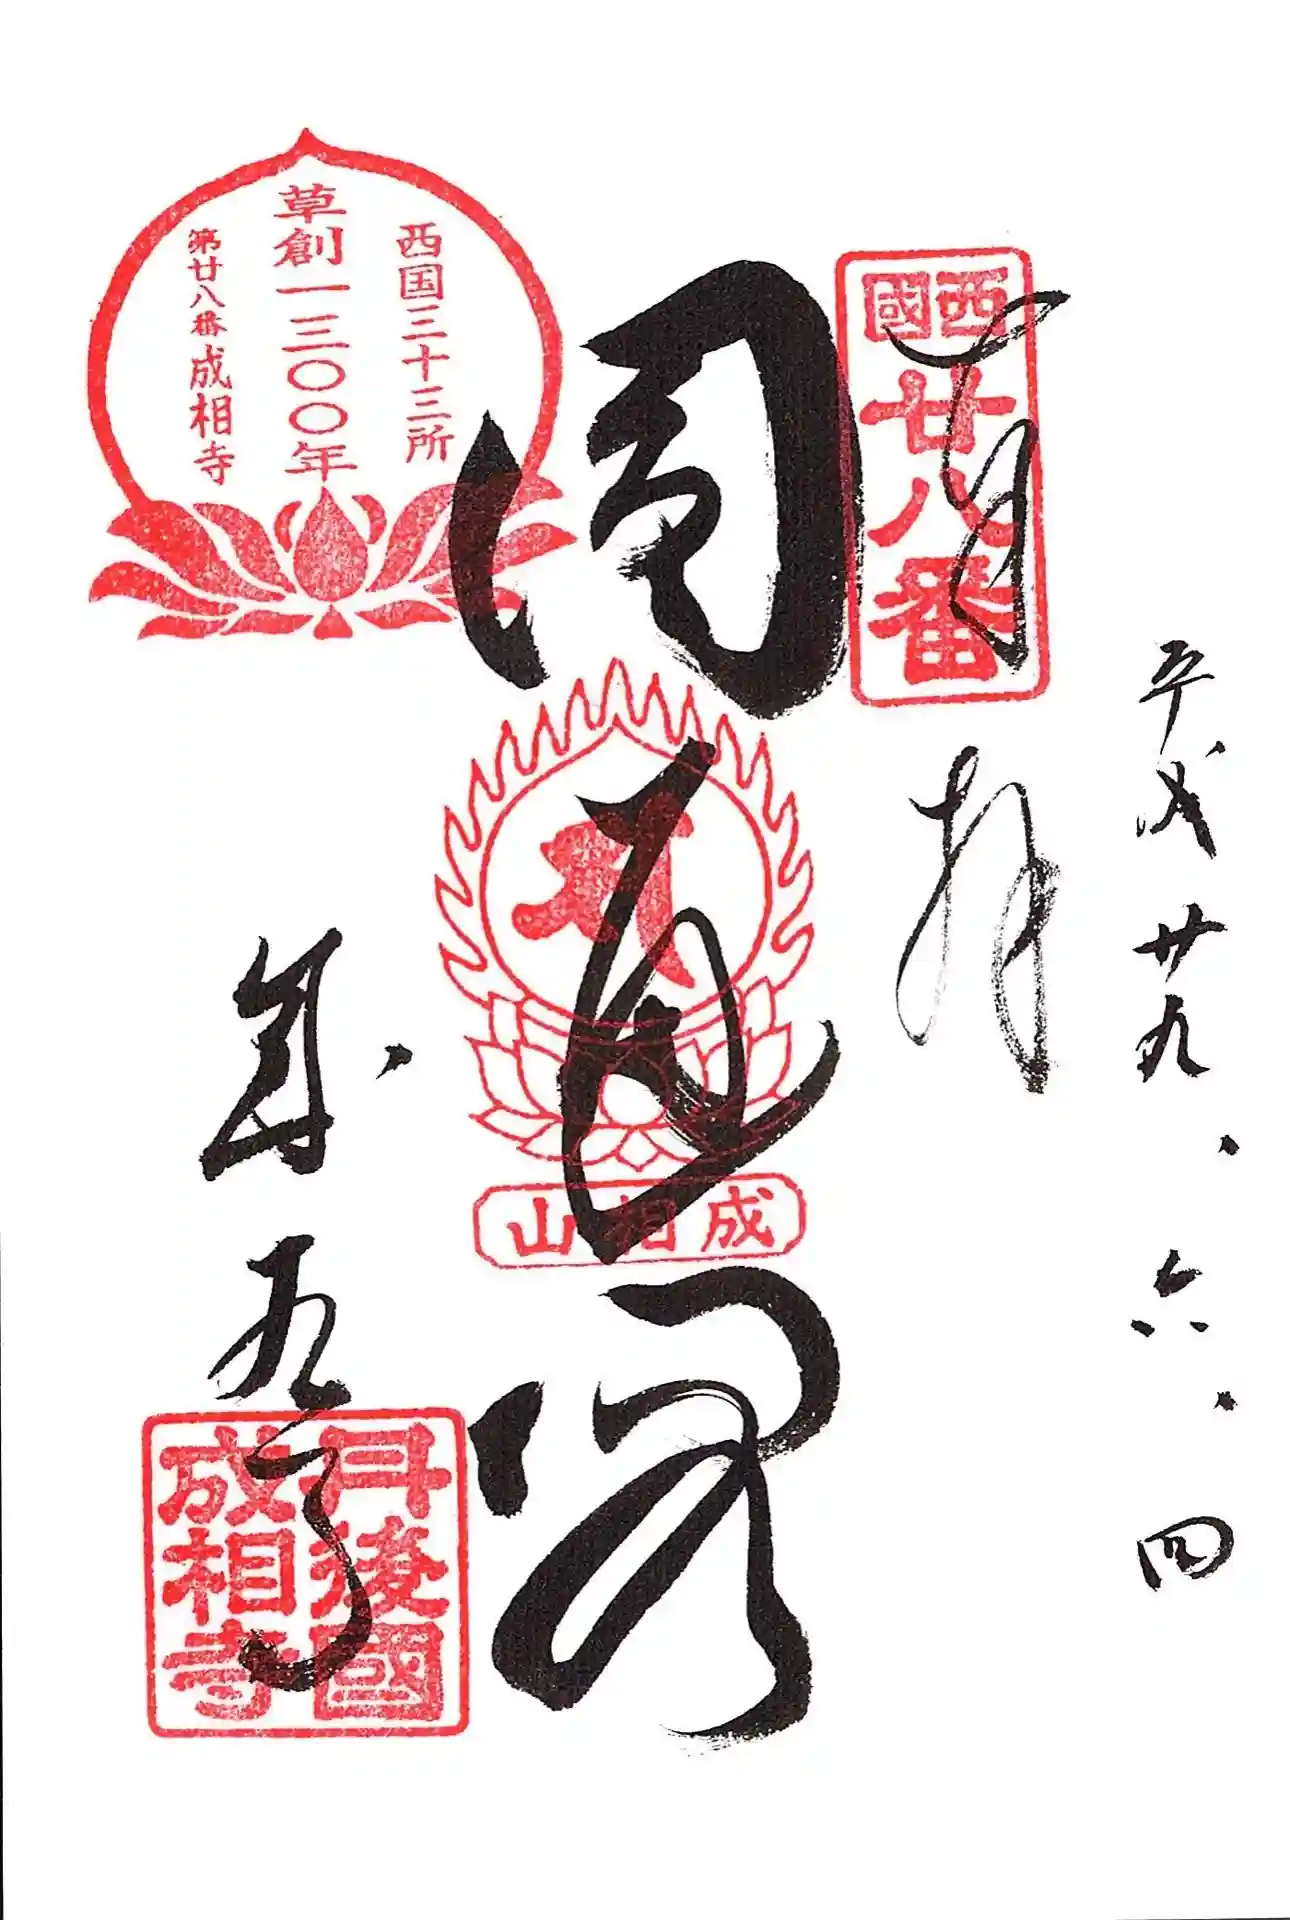 平成廿九.六.四
奉拝
西國廿八番
圓通閣
成相山
西国三十三所
草創一三〇〇年
第廿八番成相寺
成相寺
丹後國
成相寺